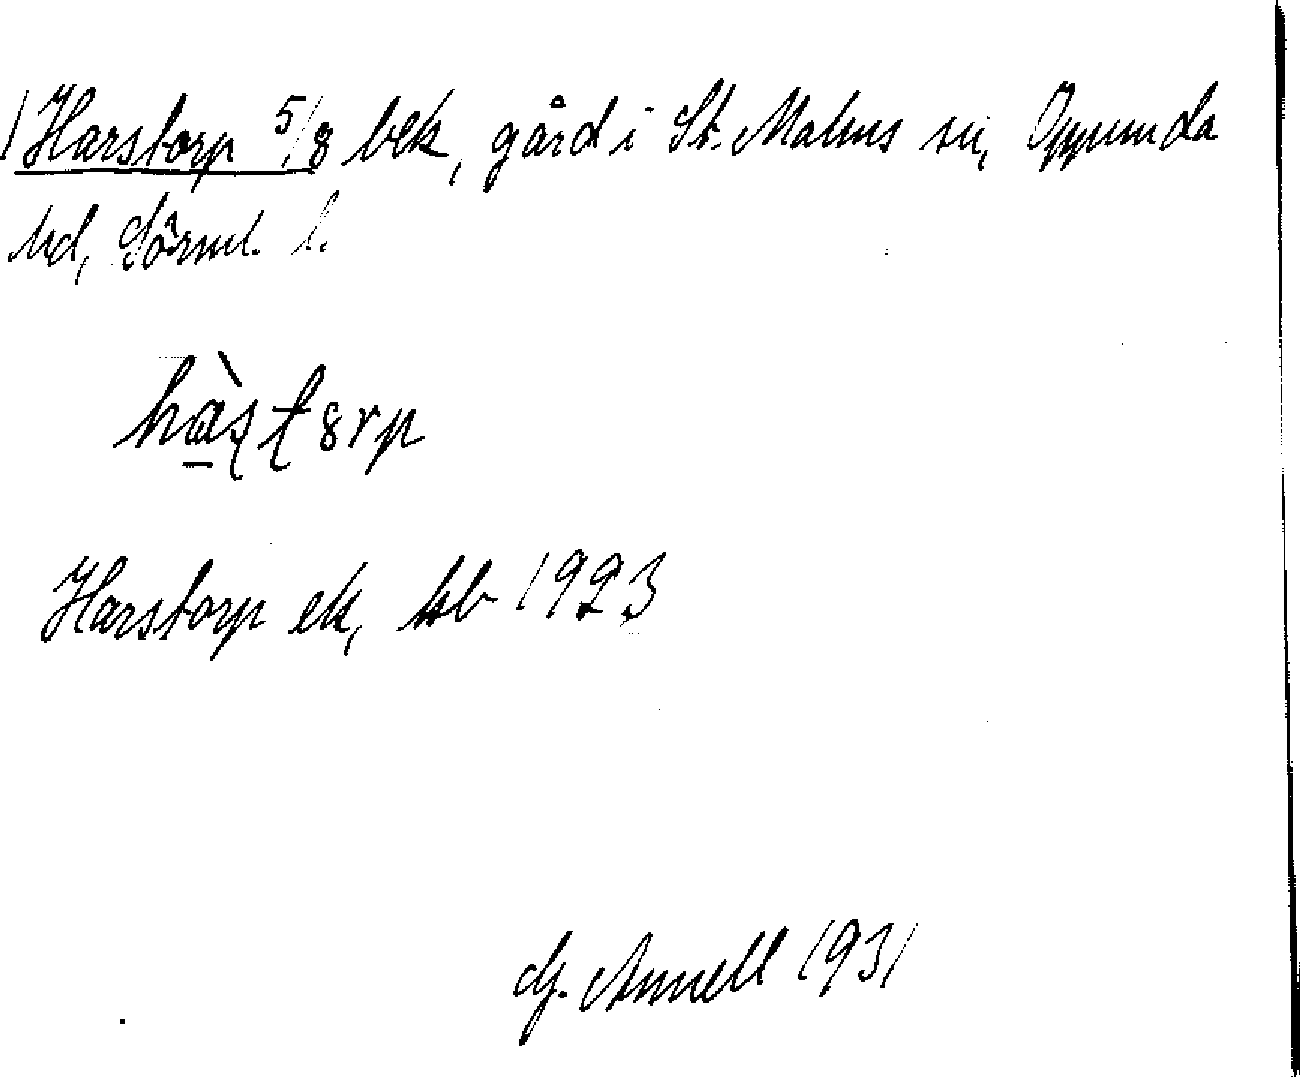 1 Harstorp 5/8 bek, gård i St. Malms sn, Oppunda
hd, Sörml. l.
Harstorp ek, hb 1923
G. Annell 1931